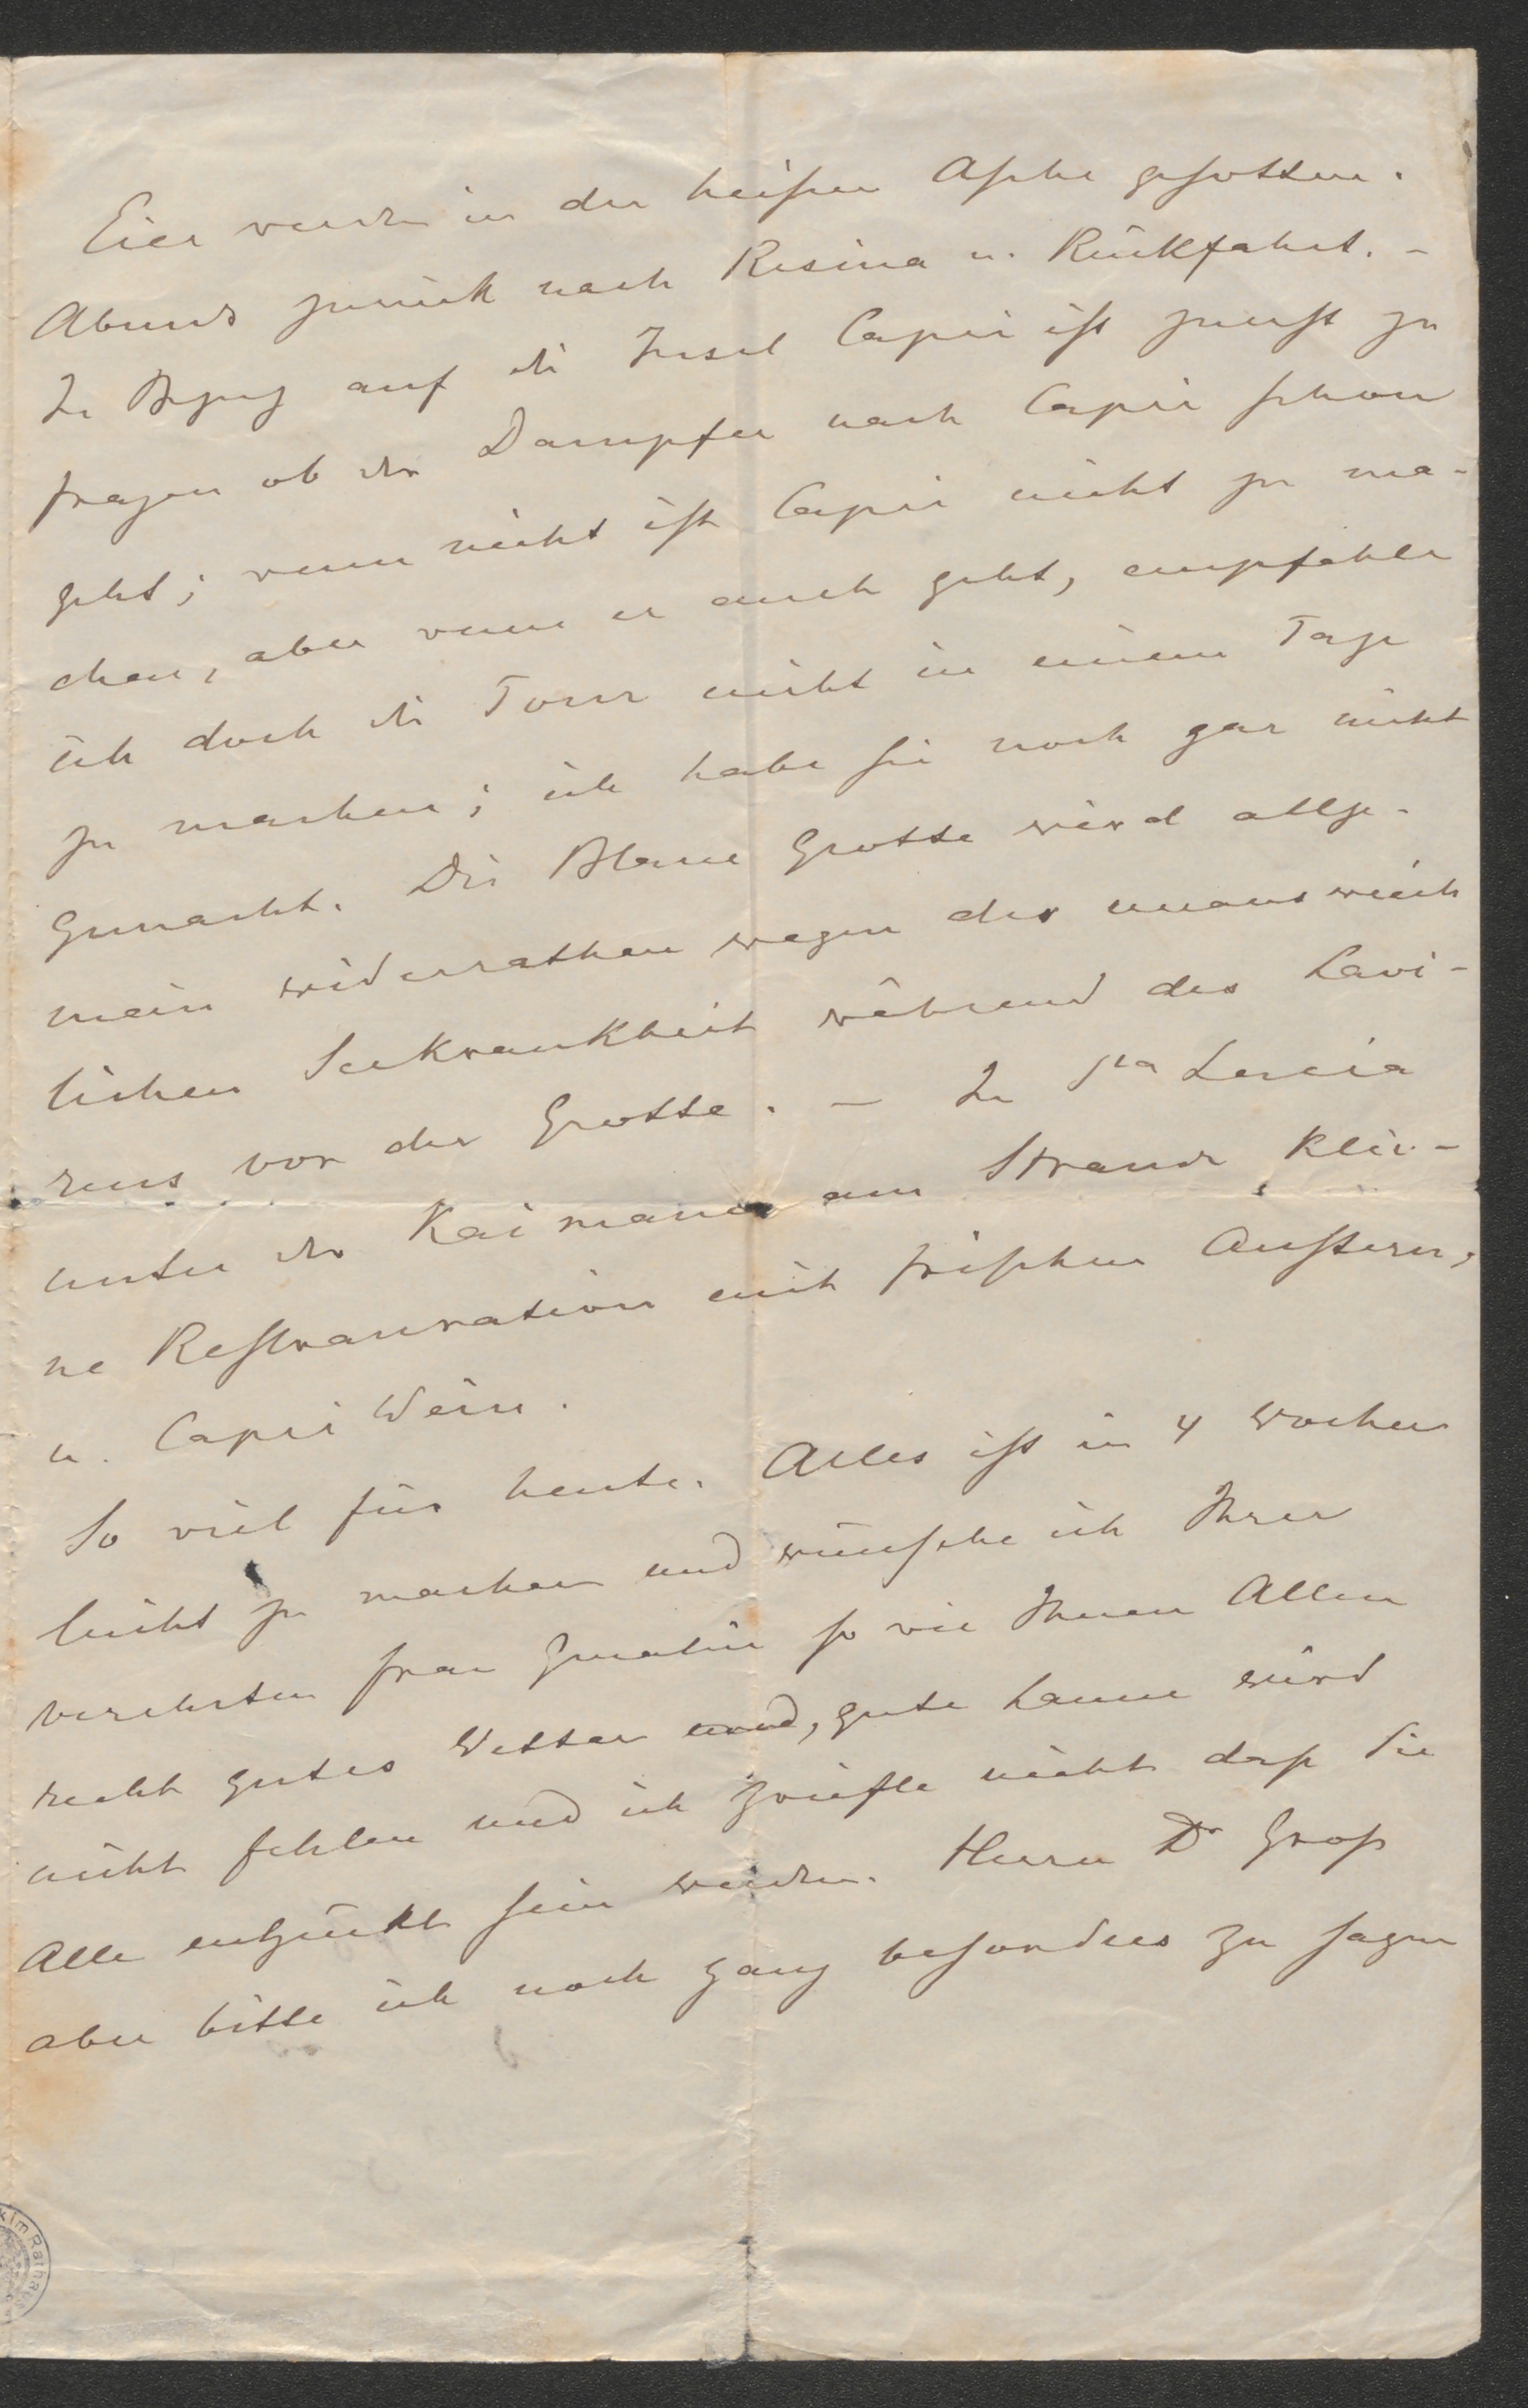 Eier werden in der heißen Asche gesotten.
Abends zurück nach Resina u. Rückfahrt. -
In Bezug auf die Insel Capri ist zuerst zu
fragen ob der Dampfer nach Capri schon
geht; wenn nicht ist Capri nicht zu ma-
chen, aber wenn er auch geht, empfehle
ich doch die Tour nicht in einem Tage
zu machen; ich habe sie noch gar nicht
gemacht. Die Blaue Grotte wird allge-
mein widerrathen wegen der unausweich
lichen Seekrankheit während des Lavi-
rens vor der Grotte. - In Sta Lucia
unter der Kaimauer am Strande klei-
ne Restauration mit frischen Austern,
u. Capri Wein.
So viel für heute. Alles ist in 4 Wochen
leicht zu machen und wünsche ich Ihrer
verehrten Frau Gemalin so wie Ihnen Allen
recht gutes Wetter und, gute Laune wird
nicht fehlen und ich zweifle nicht daß Sie
Alle entzückt sein werden. Herrn Dr Groß
aber bitte ich noch ganz besonders zu sagen
k im Rathaus